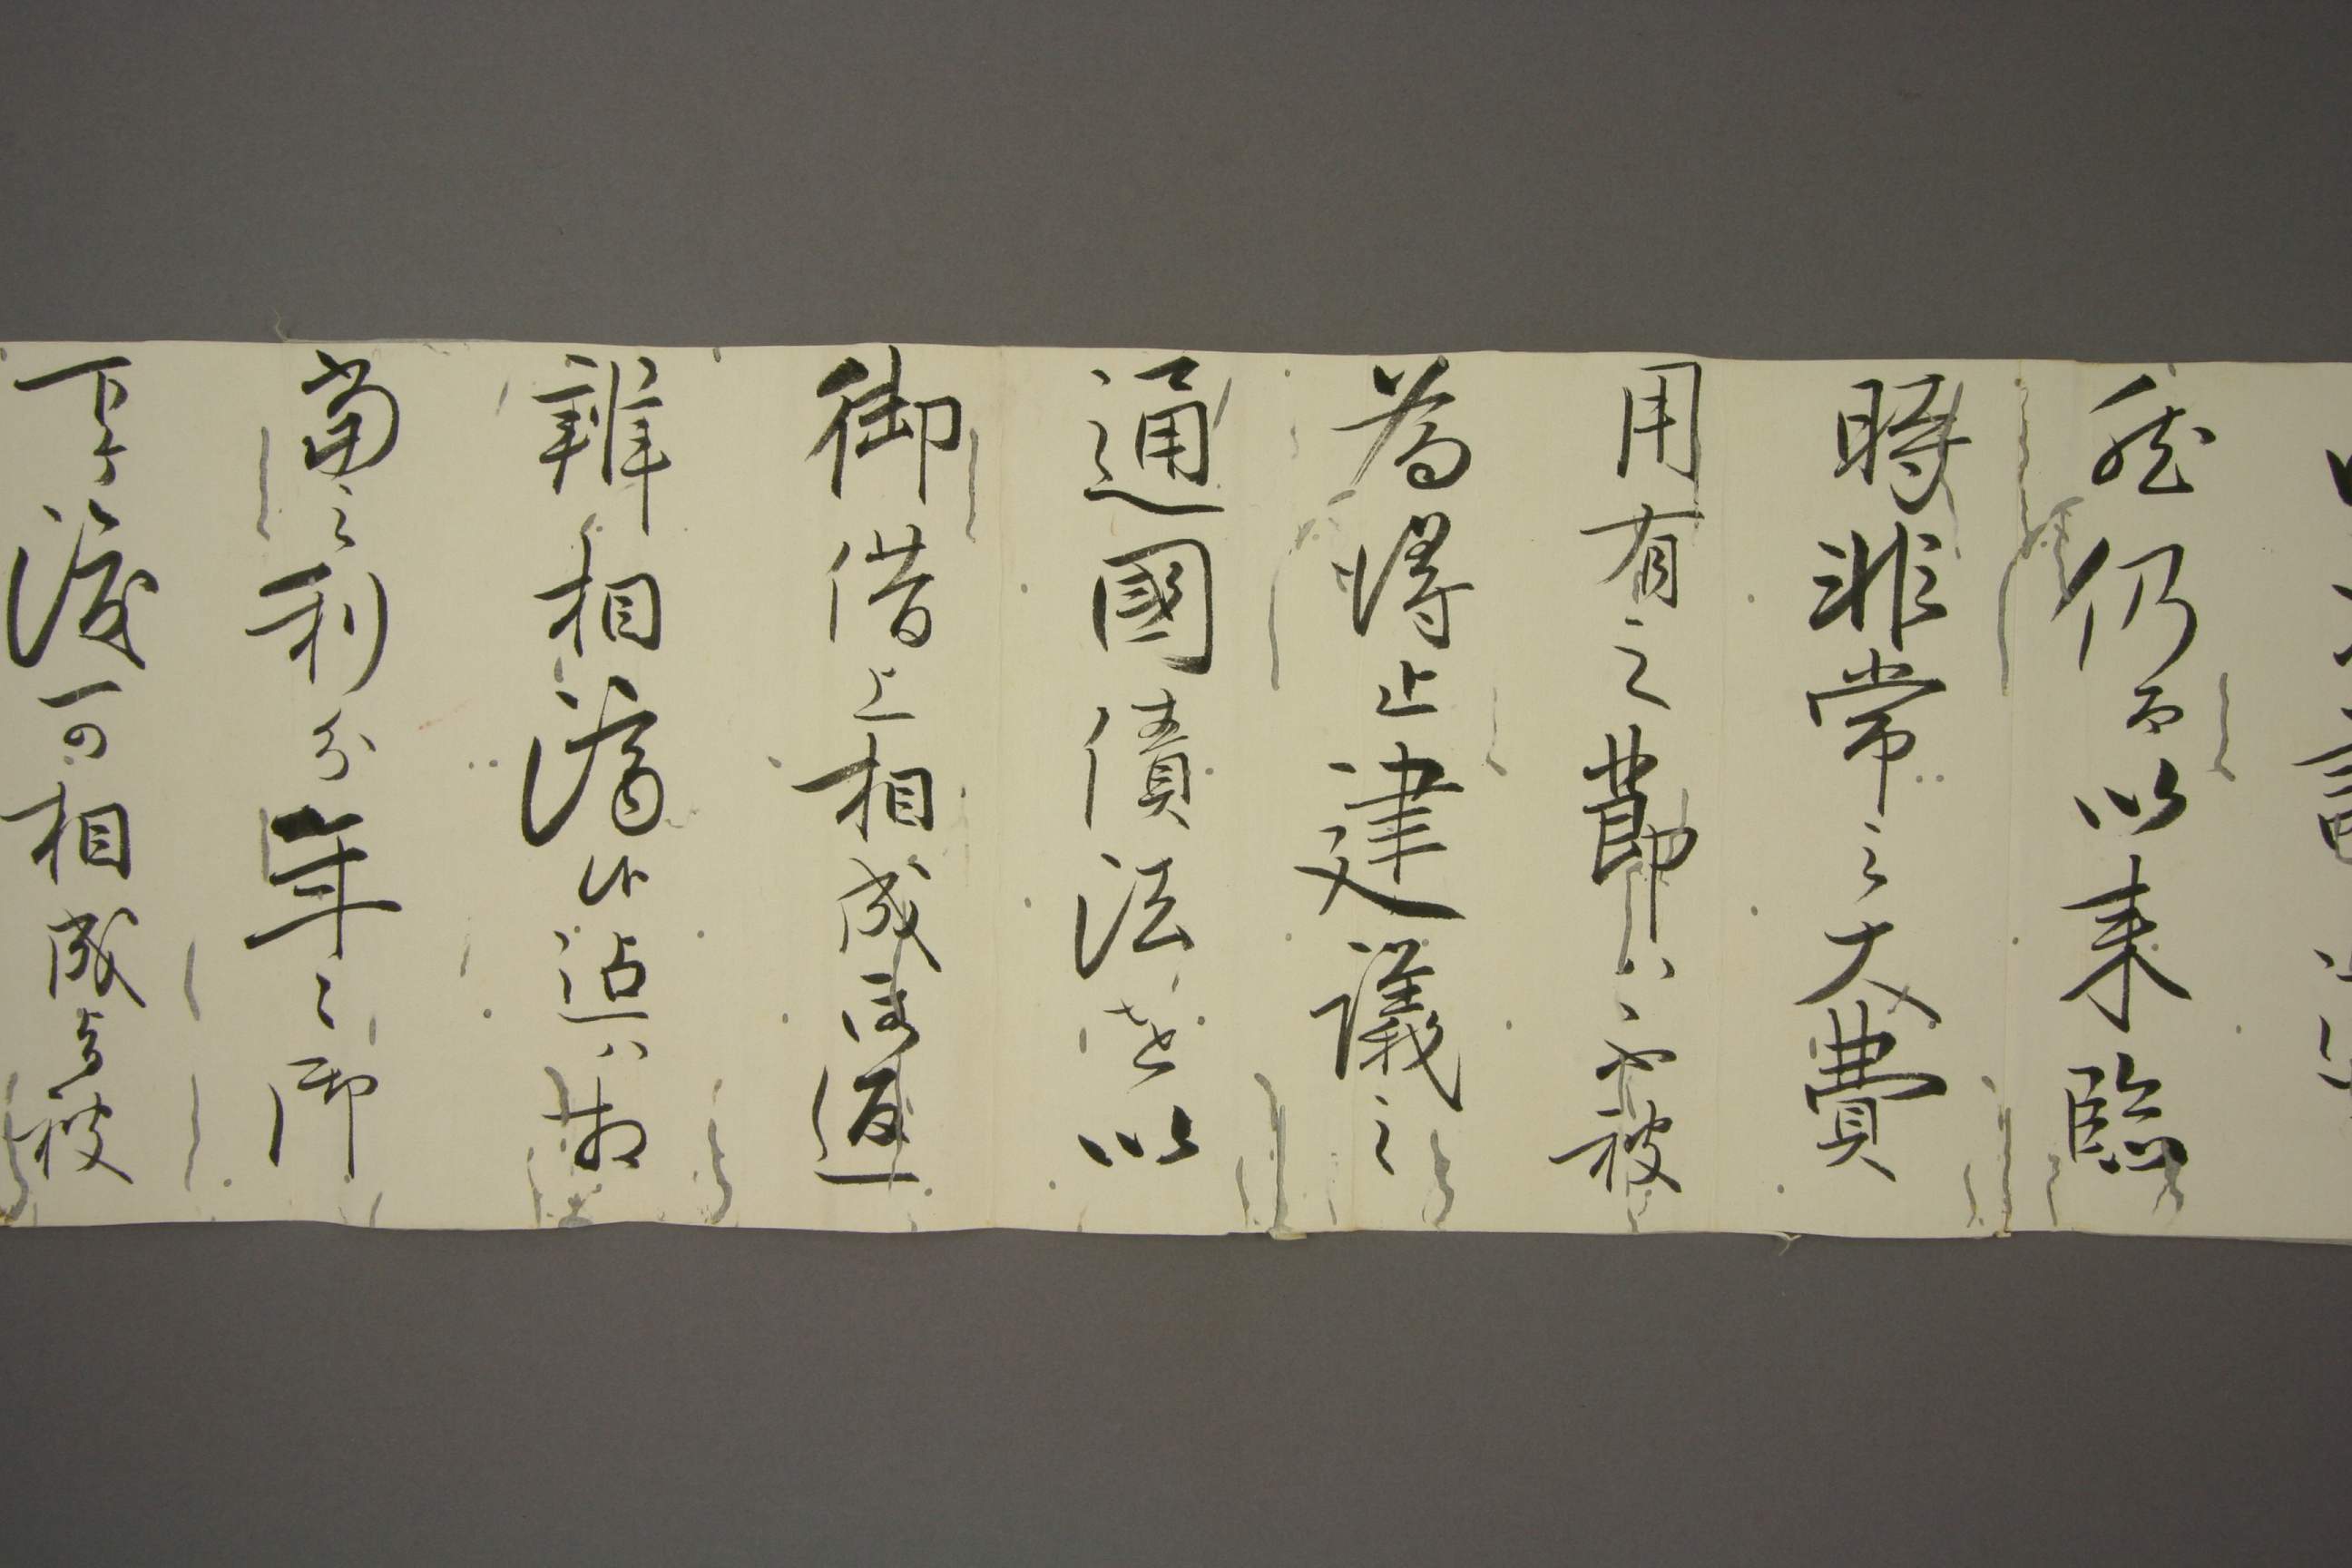 然仍而以来臨
時非常之大費
用有之節ハ不被
為得止建議之
通國債法を以
御借上相成御返
辨相済候迠ハ相
當之利分年々御
下ケ渡可相成与被